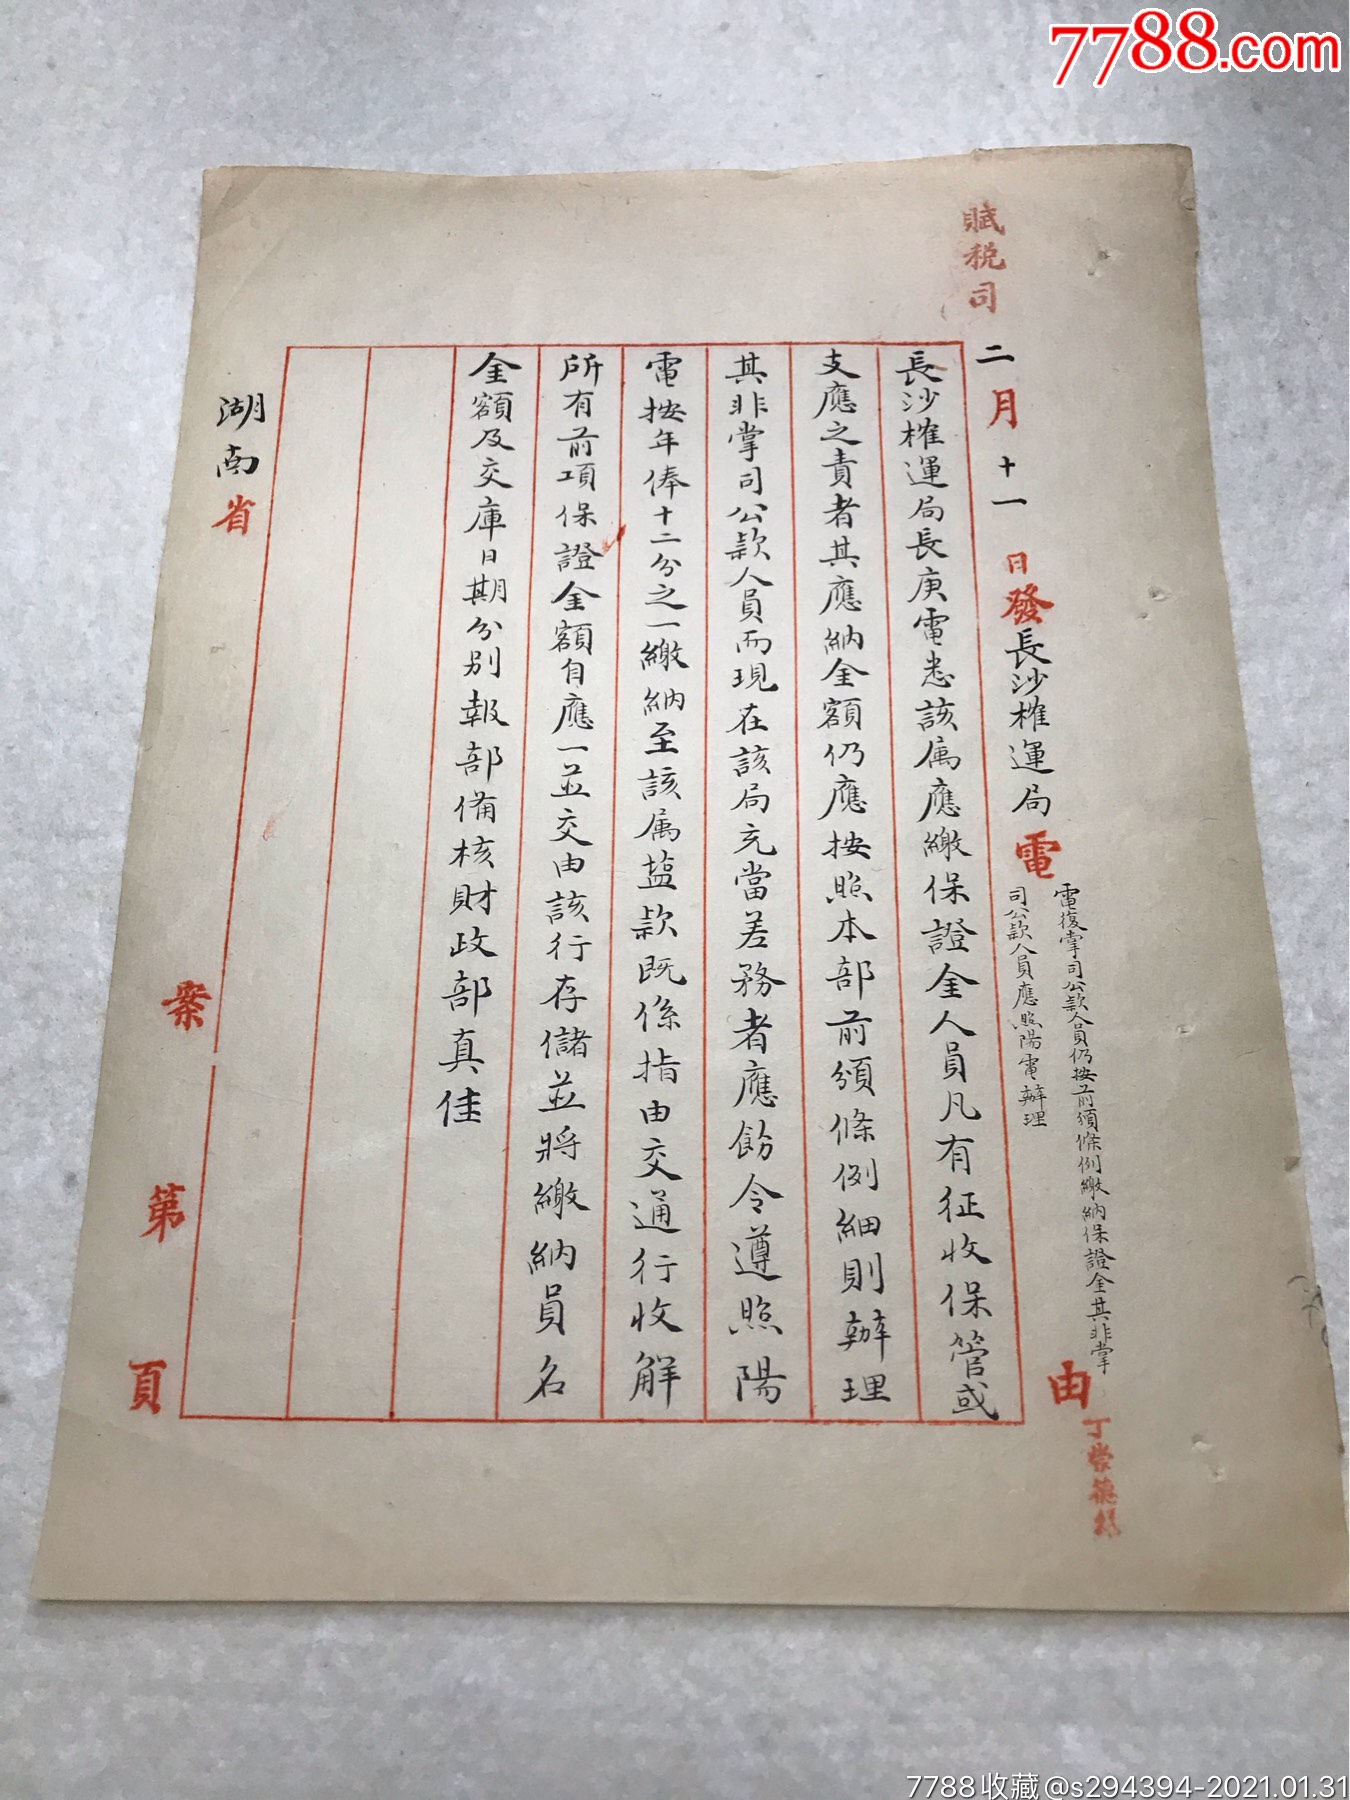 7788.com
賦税司
二月十一日發長沙榷運局電
電復掌司公款人員仍按前頒條例繳納保證金其非掌
司公款人員應照陽電辦理
由
丁崇德
長沙榷運局長庚電悉該属應繳保證金人員凡有征收保管或
支應之責者其應納金額仍應按照本部前頒條例細則辦理
其非掌司公款人員而現在該局充當差務者應飭令遵照陽
電按年俸十二分之一繳納至該属塩款既係指由交通行收解
所有前項保證金額自應一並交由該行存儲並將繳納員名
金額及交庫日期分别報部備核財政部真佳
湖南省
案
第
頁
7788收藏@s294394-2021.01.31